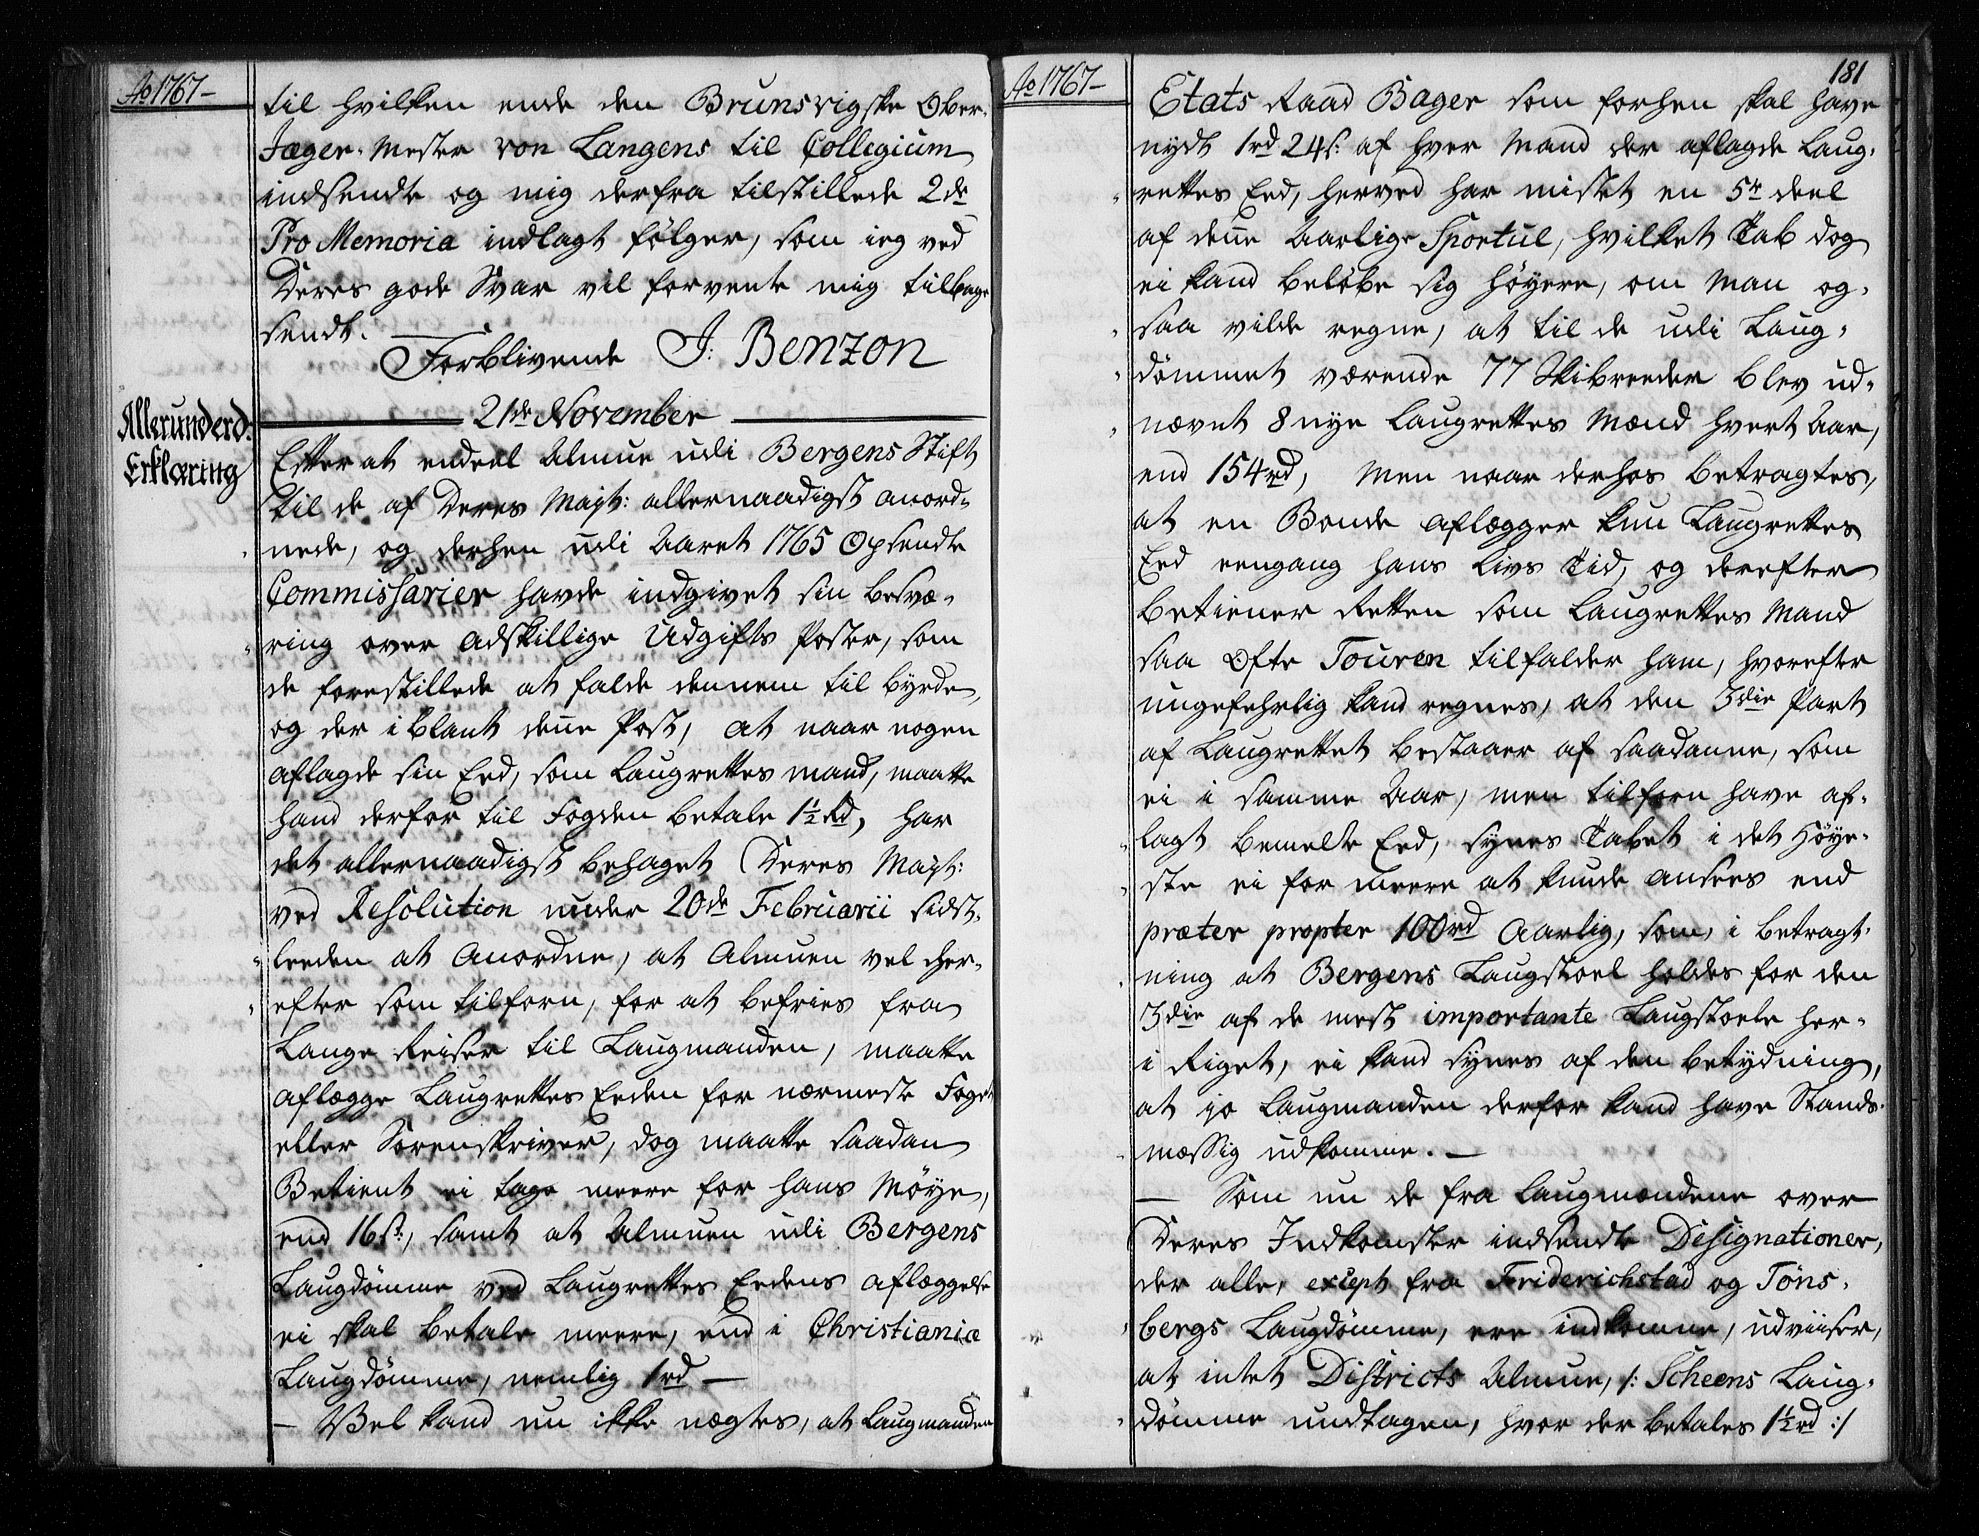 Ao 1767-
til hvilken ende den Brunsvigske Ober-
Jæger-Mester von Langens til Collegium
indsendte og mig derfra tilstillede 2de
Pro Memoria indlagt følger, som ieg ved
Deres gode Svar vil forvente mig tilbage
sendt.
Forblivende J: Benzon
21de November
Allerunderd:
Erklæring
Efter at endeel Almue udi Bergens Stift
til de af Deres Mayt: allernaadigst anord-
nede, og derhen udi Aaret 1765 Opsendte
Commissarier havde indgivet sin besvæ-
ring over adskillige Udgifts Poster, som
de forestillede at falde dennem til byrde,
og der iblant denne Post, at naar nogen
aflagde sin Eed, som Laugrettes mand, maatte
hand derfor til Fogden betale 1½ Rd, har
det allernaadigst behaget Deres Mayt:
ved Resolution under 20de Februarii sidst-
leeden at Anordne, at Almuen vel her-
efter som tilforn, for at befries fra
Lange Reiser til Laugmanden, maatte
aflægge Laugrettes Eeden for nærmeste Foged
eller Sorenskriver, dog maatte saadan
Betient ei tage meere for hans Møye,
end 16 s:, samt at Almuen udi Bergens
Laugdømme ved Laugrettes Eedens aflæggelse
ei skal betale meere, end i Christianiæ
Laugdømme, nemlig 1 rd —
— Vel kand nu ikke nægtes, at Laugmanden
Ao 1767-
181
Etats Raad Bager som forhen skal have
nydt 1 rd 24 s: af hver Mand der aflagde Laug-
rettes Eed, herved har mistet en 5te deel
af denne Aarlige Sportul, hvilket Tab dog
ei kand beløbe sig høyere, om Man og-
saa vilde regne, at til de udi Laug-
dømmet værende 77 Skibreeder blev ud-
nævnt 8 nye Laugrettes Mænd hvert Aar,
end 154 rd, Men naar derhos betragtes,
at en Bonde aflægger kun Laugrettes
Eed eengang hans Livs Tid, og derefter
betiener Retten som Laugrettes Mand
saa Ofte Touren tilfalder ham, hvorefter
ungefehrlig kand regnes, at den 3die Part
af Laugrettet bestaaer af saadanne, som
ei i samme Aar, men tilforn have af-
lagt bemelte Eed, synes Tabet i det Høye-
ste ei for meere at kunde ansees end
præter propter 100 rd Aarlig, som, i betragt-
ning at Bergens Laugstoel holdes for den
3die af de mest importante Laugstoele her-
i Riget, ei kand synes af den betydning,
at jo Laugmanden derfor kand have Stands-
mæssig udkomme. —
— Som nu de fra Laugmændene over
Deres Indkomster indsendte Designationer,
der alle, except fra Friderichstad og Tøns-
bergs Laugdømme, ere indkomne, udviiser,
at intet Districts Almue, /: Scheens Laug-
dømme undtagen, hvor der betales 1½ rd :/